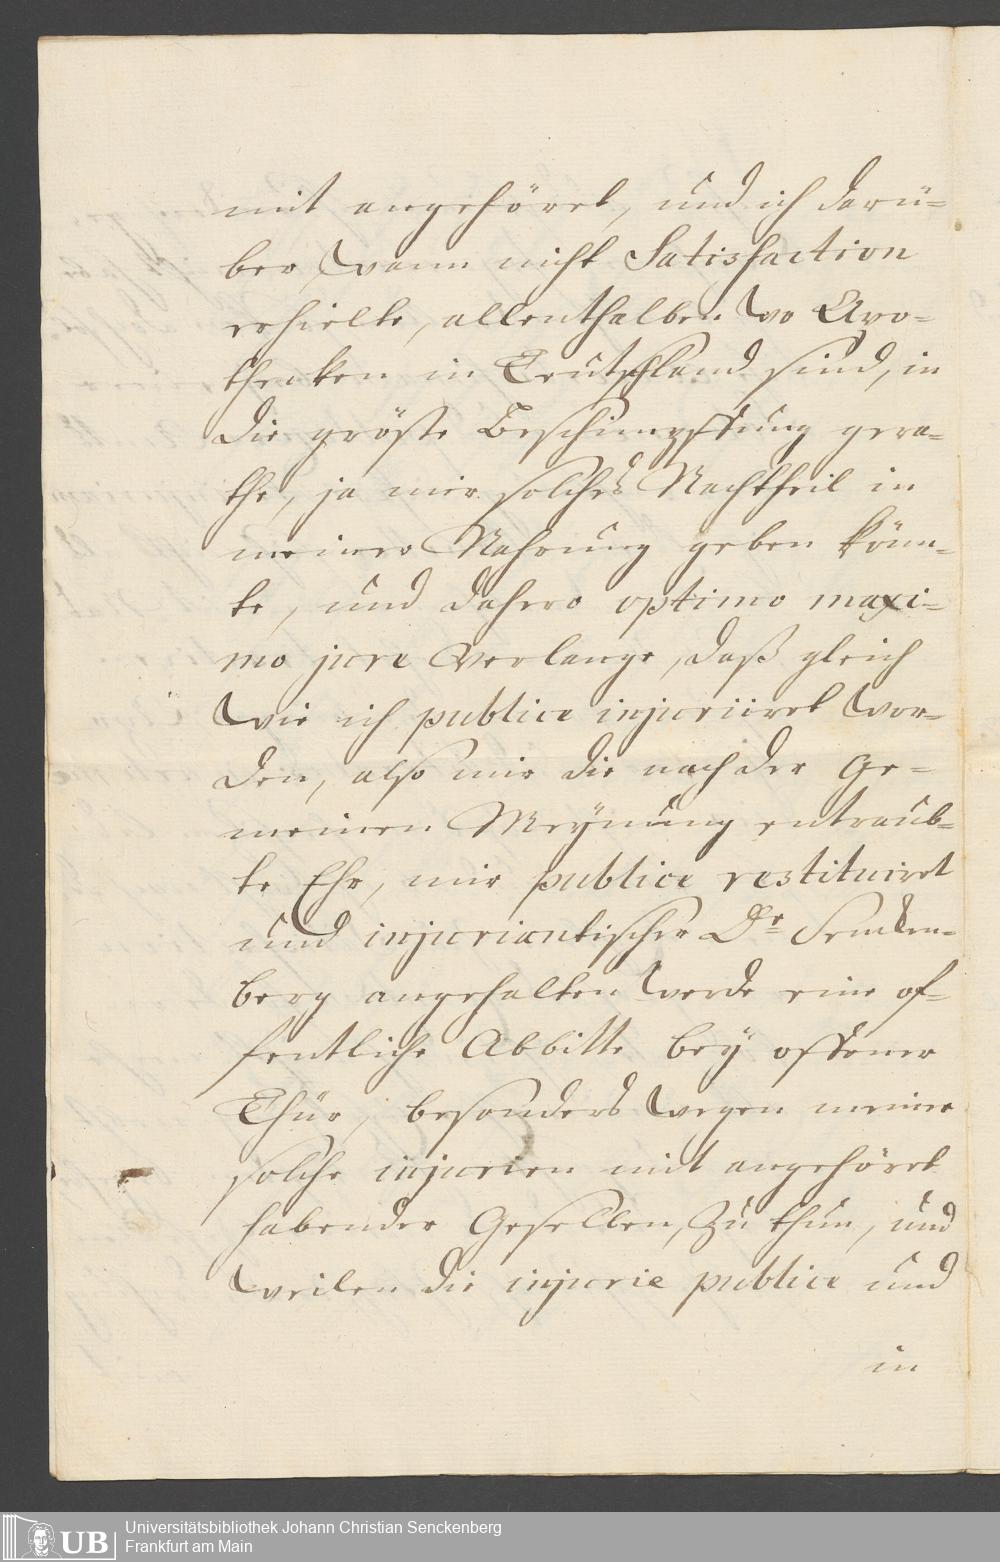 mit angehöret, und ich darü=
ber, wann nicht Satisfaction
erhielte, allenthalben wo Apo=
thecken in Teutschland sind, in
die gröste Beschimpffung gera=
the, ja mir solches Nachtheil in
meiner Nahrung geben kön=
te, und dahero optimo maxi=
mo jure verlange, daß gleich
wie ich publice injuriiret wor=
den, also mir die nach der Ge=
meinen Meÿnung entraub=
te Ehr, mir publice restituiret
und injuriantischer Dr= Sencken=
berg angehalten werde eine of=
fentliche Abbitte beÿ offener
Thür, besonders wegen meiner
solche injurien mit angehöret
habender Gesellen, zu thun, und
weilen die injurie publice und
in
Universitätsbibliothek Johann Christian Senckenberg
Frankfurt am Main
UB